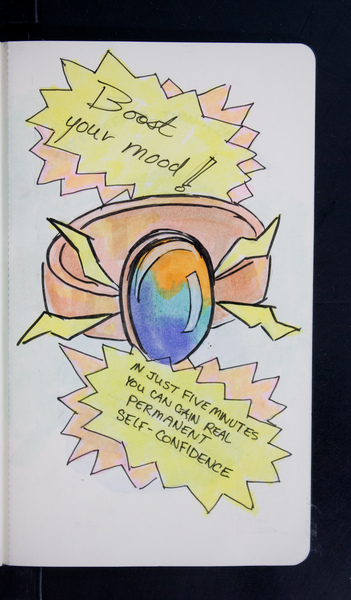 Boost
your mood!!
IN JUST FIVE MINUTES
YOU CAN GAIN REAL
PERMANENT
SELF-CONFIDENCE